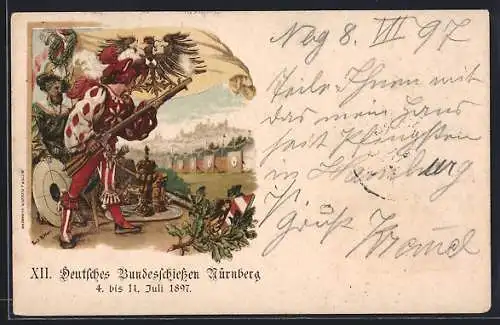 Nbg 8. VII 97
Teile Ihnen mit
das mein Hans
seit Pfingsten
in Hamburg
Gruß
XII. Deutsches Bundesschießen Nürnberg
4. bis 11. Juli 1897.